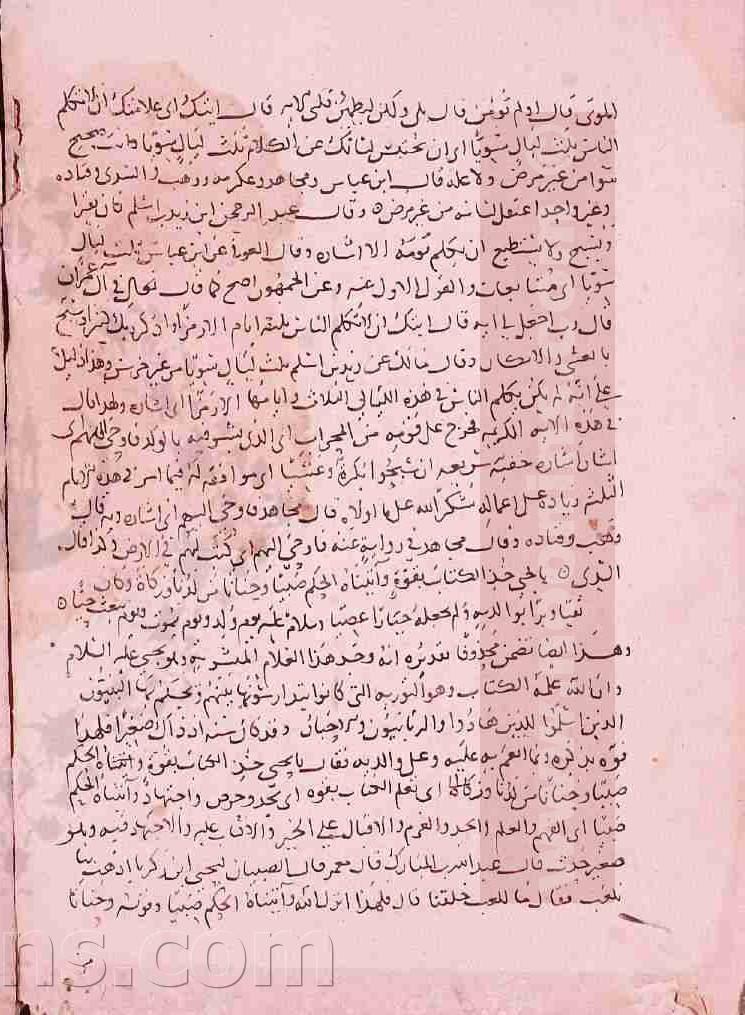 الموتى قال اولم تؤمن قال بلى ولكن ليطمئن قلبي الايه قال ايتك اى علامتك ان لا تكلم
الناس ثلث ليال سويا اى ان تحبس لسانك عن الكلام ثلث ليال سويا وانت صحيح
سوى من غير مرض ولا عله قال ابن عباس ومجاهد وعكرمه ووهب والسدى وقتاده
وغير واحد اعتقل لسانه من غير مرض ه وقال عبد الرحمن ابن زيد بن اسلم كان يقرا
ويسبح ولا يستطيع ان يكلم قومه الا اشاره وقال العوفى عن ابن عباس ثلث ليال
سويا اى متتابعات والقول الاول عنه وعن الجمهور اصح كما قال تعالى فى آل عمران
قال رب اجعل لى ايه قال ايتك ان لا تكلم الناس ثلثه ايام الا رمزا واذكر ربك كثيرا وسبح
بالعشى والابكار وقال مالك عن زيد بن اسلم ثلث ليال سويا من غير خرس وهذا دليل
على انه لم يكن يكلم الناس فى هذه الليالى الثلاث وايامها الا رمزا اى اشاره ولهذا قال
فى هذه الايه الكريمه فخرج على قومه من المحراب اى الذى بشر فيه بالولد فاوحى اليهم اى
اشار اشاره خفيه سريعه ان سبحوا بكرة وعشيا اى موافقه له فيما امر به فى هذه الايام
الثلثه زياده على اعماله شكرا لله على ما اولاه قال مجاهد فاوحى اليهم اى اشار وبه قال
وهب وقتاده وقال مجاهد فى رواية عنه فاوحى اليهم اى كتب لهم فى الارض وكذا قال
السدى ه يا يحى خذ الكتاب بقوة وآتيناه الحكم صبيا وحنانا من لدنا وزكاة وكان
تقيا وبرا بوالديه ولم يكن جبارا عصيا وسلام عليه يوم ولد ويوم يموت ويوم يبعث حيا ه
وهذا ايضا تضمن محذوفا تقديره انه وجد هذا الغلام المبشر به وهو يحيى عليه السلام
وان الله علمه الكتاب وهو التوريه التى كانوا يتدارسونها بينهم ويحكم بها النبيون
الذين اسلموا للذين هادوا والربانيون والاحبار وقد كان سنه اذ ذاك صغيرا فلهذا
نوه بذكره وبما انعم به عليه وعلى والديه فقال يا يحيى خذ الكتاب بقوة وآتيناه الحكم
صبيا وحنانا من لدنا وزكاة اى تعلم الكتاب بقوه اى بجد وحرص واجتهاد وآتيناه الحكم
صبيا اى الفهم والعلم والجد والعزم والاقبال على الخير والاكباب عليه والاجتهاد فيه وهو
صغير حدث قال عبد الله بن المبارك قال معمر قال الصبيان ليحيى ابن زكريا اذهب بنا
نلعب فقال ما للعب خلقنا قال فلهذا انزل الله وآتيناه الحكم صبيا وقوله وحنانا
من
ns.com